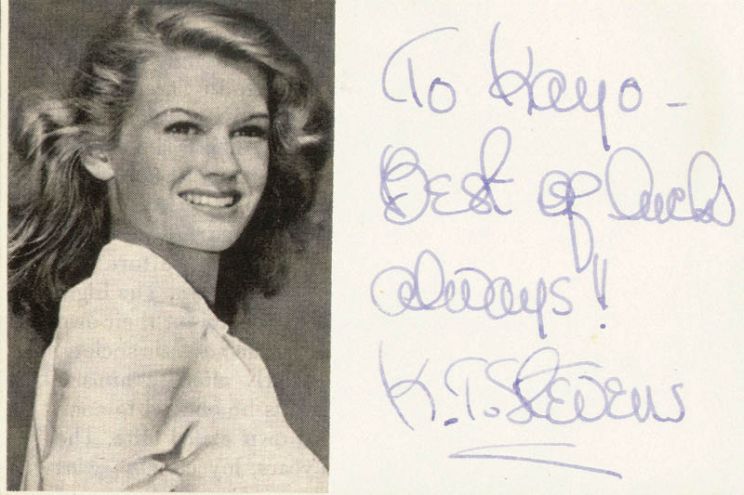 To Kayo -
Best of luck
always!
K.T. Stevens